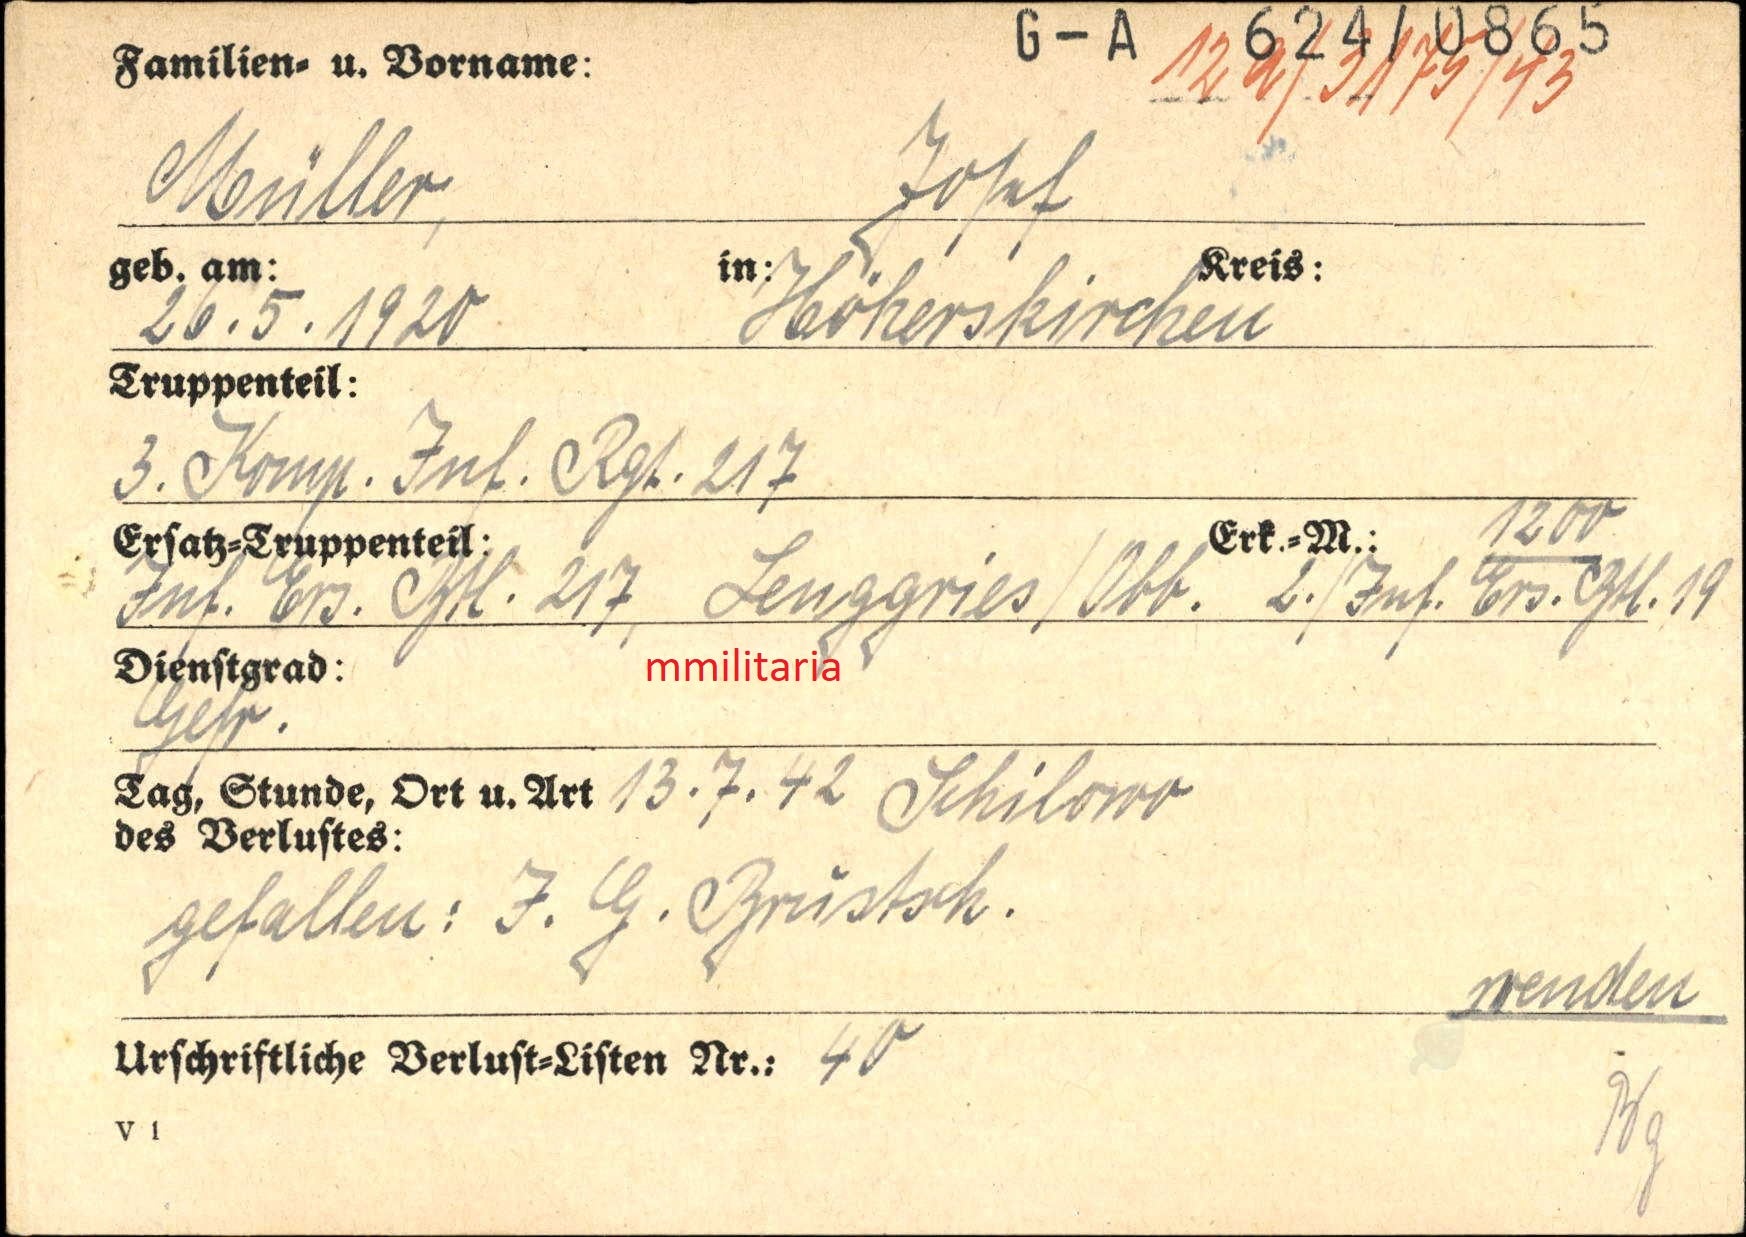 G-A 624/0865
Familien- u. Vorname:
12 a/3175/43
Müller, Josef
geb. am: in: Kreis:
26.5.1920 Hökerskirchen
Truppenteil:
3. Komp. Inf. Rgt. 217
Ersatz-Truppenteil: Erk.-M.: 1200
Inf. Ers. Btl. 217, Lenggries/Obb. 2./Inf. Ers. Btl. 19
Dienstgrad:
mmilitaria
Gefr.
Tag, Stunde, Ort u. Art 13.7.42 Schilowo
des Verlustes:
gefallen: I. G. Brustsch.
wenden
Urschriftliche Verlust-Listen Nr.: 40
V 1